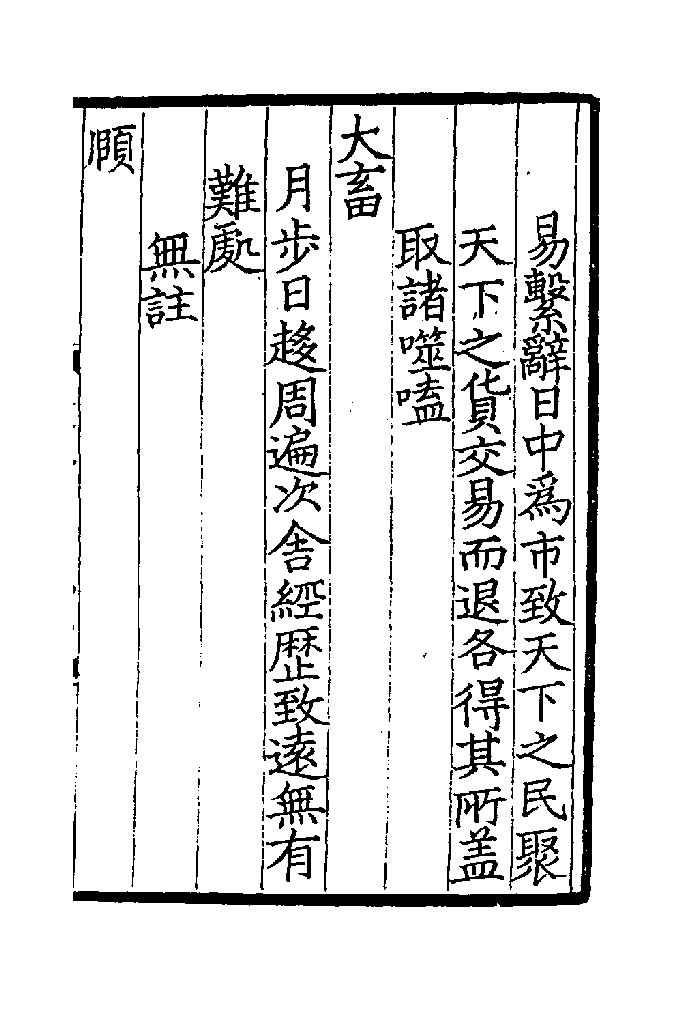 易繫辭日中為市致天下之民聚
天下之貨交易而退各得其所蓋
取諸噬嗑
大畜
月步日趍周遍次舎經歴致遠無有
難處
無註
頤